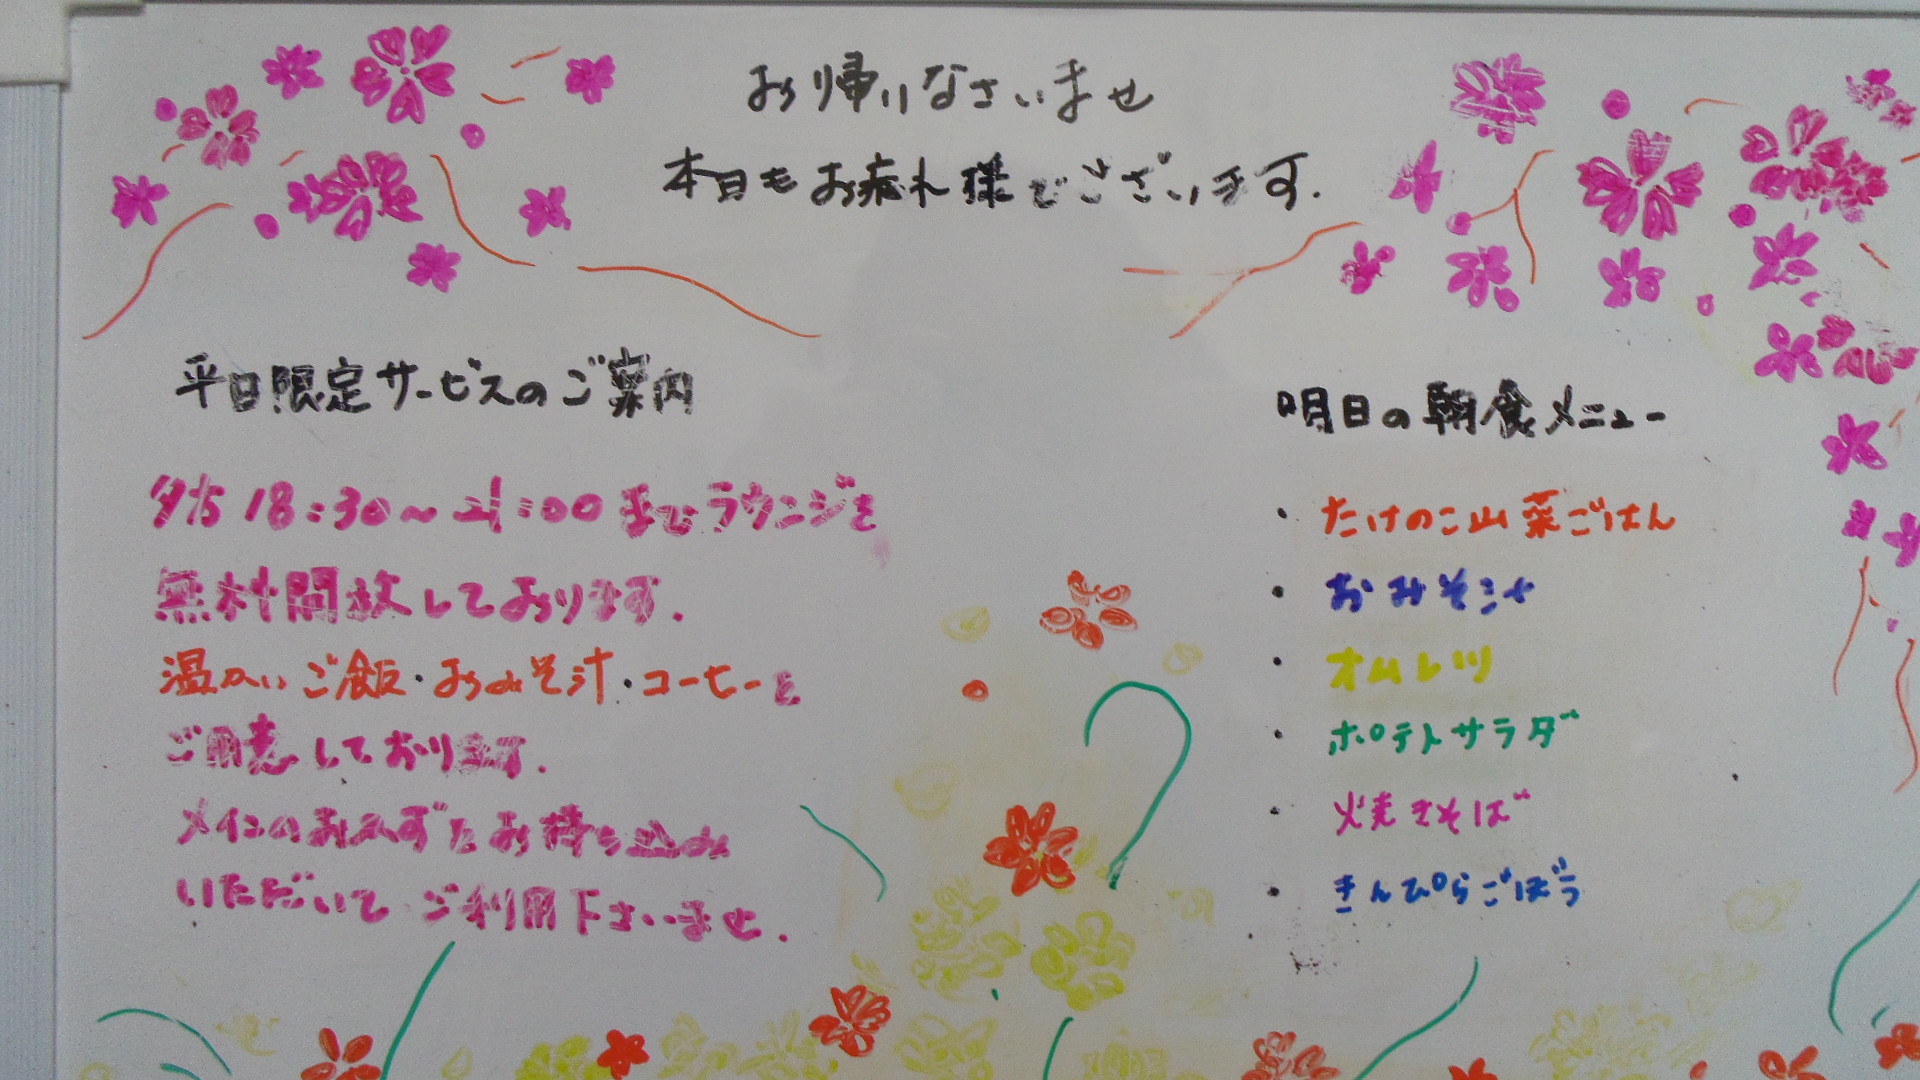 お帰りなさいませ
本日もお疲れ様でございます.
平日限定サービスのご案内
夕方 18:30～21:00までラウンジを
無料開放しております.
温かいご飯・おみそ汁・コーヒーを
ご用意しております.
メインのおかずをお持ち込み
いただいて ご利用下さいませ.
明日の朝食メニュー
・たけのこ山菜ごはん
・おみそ汁
・オムレツ
・ポテトサラダ
・焼きそば
・きんぴらごぼう